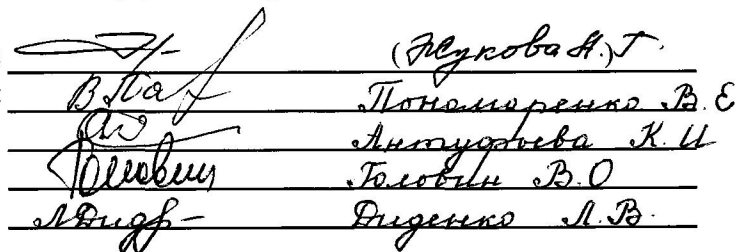 (Жукова Н.) Г.
Пономаренко В. Е
Антуфьева К. И
Головин В. О
Л Дид Диденко Л. В.